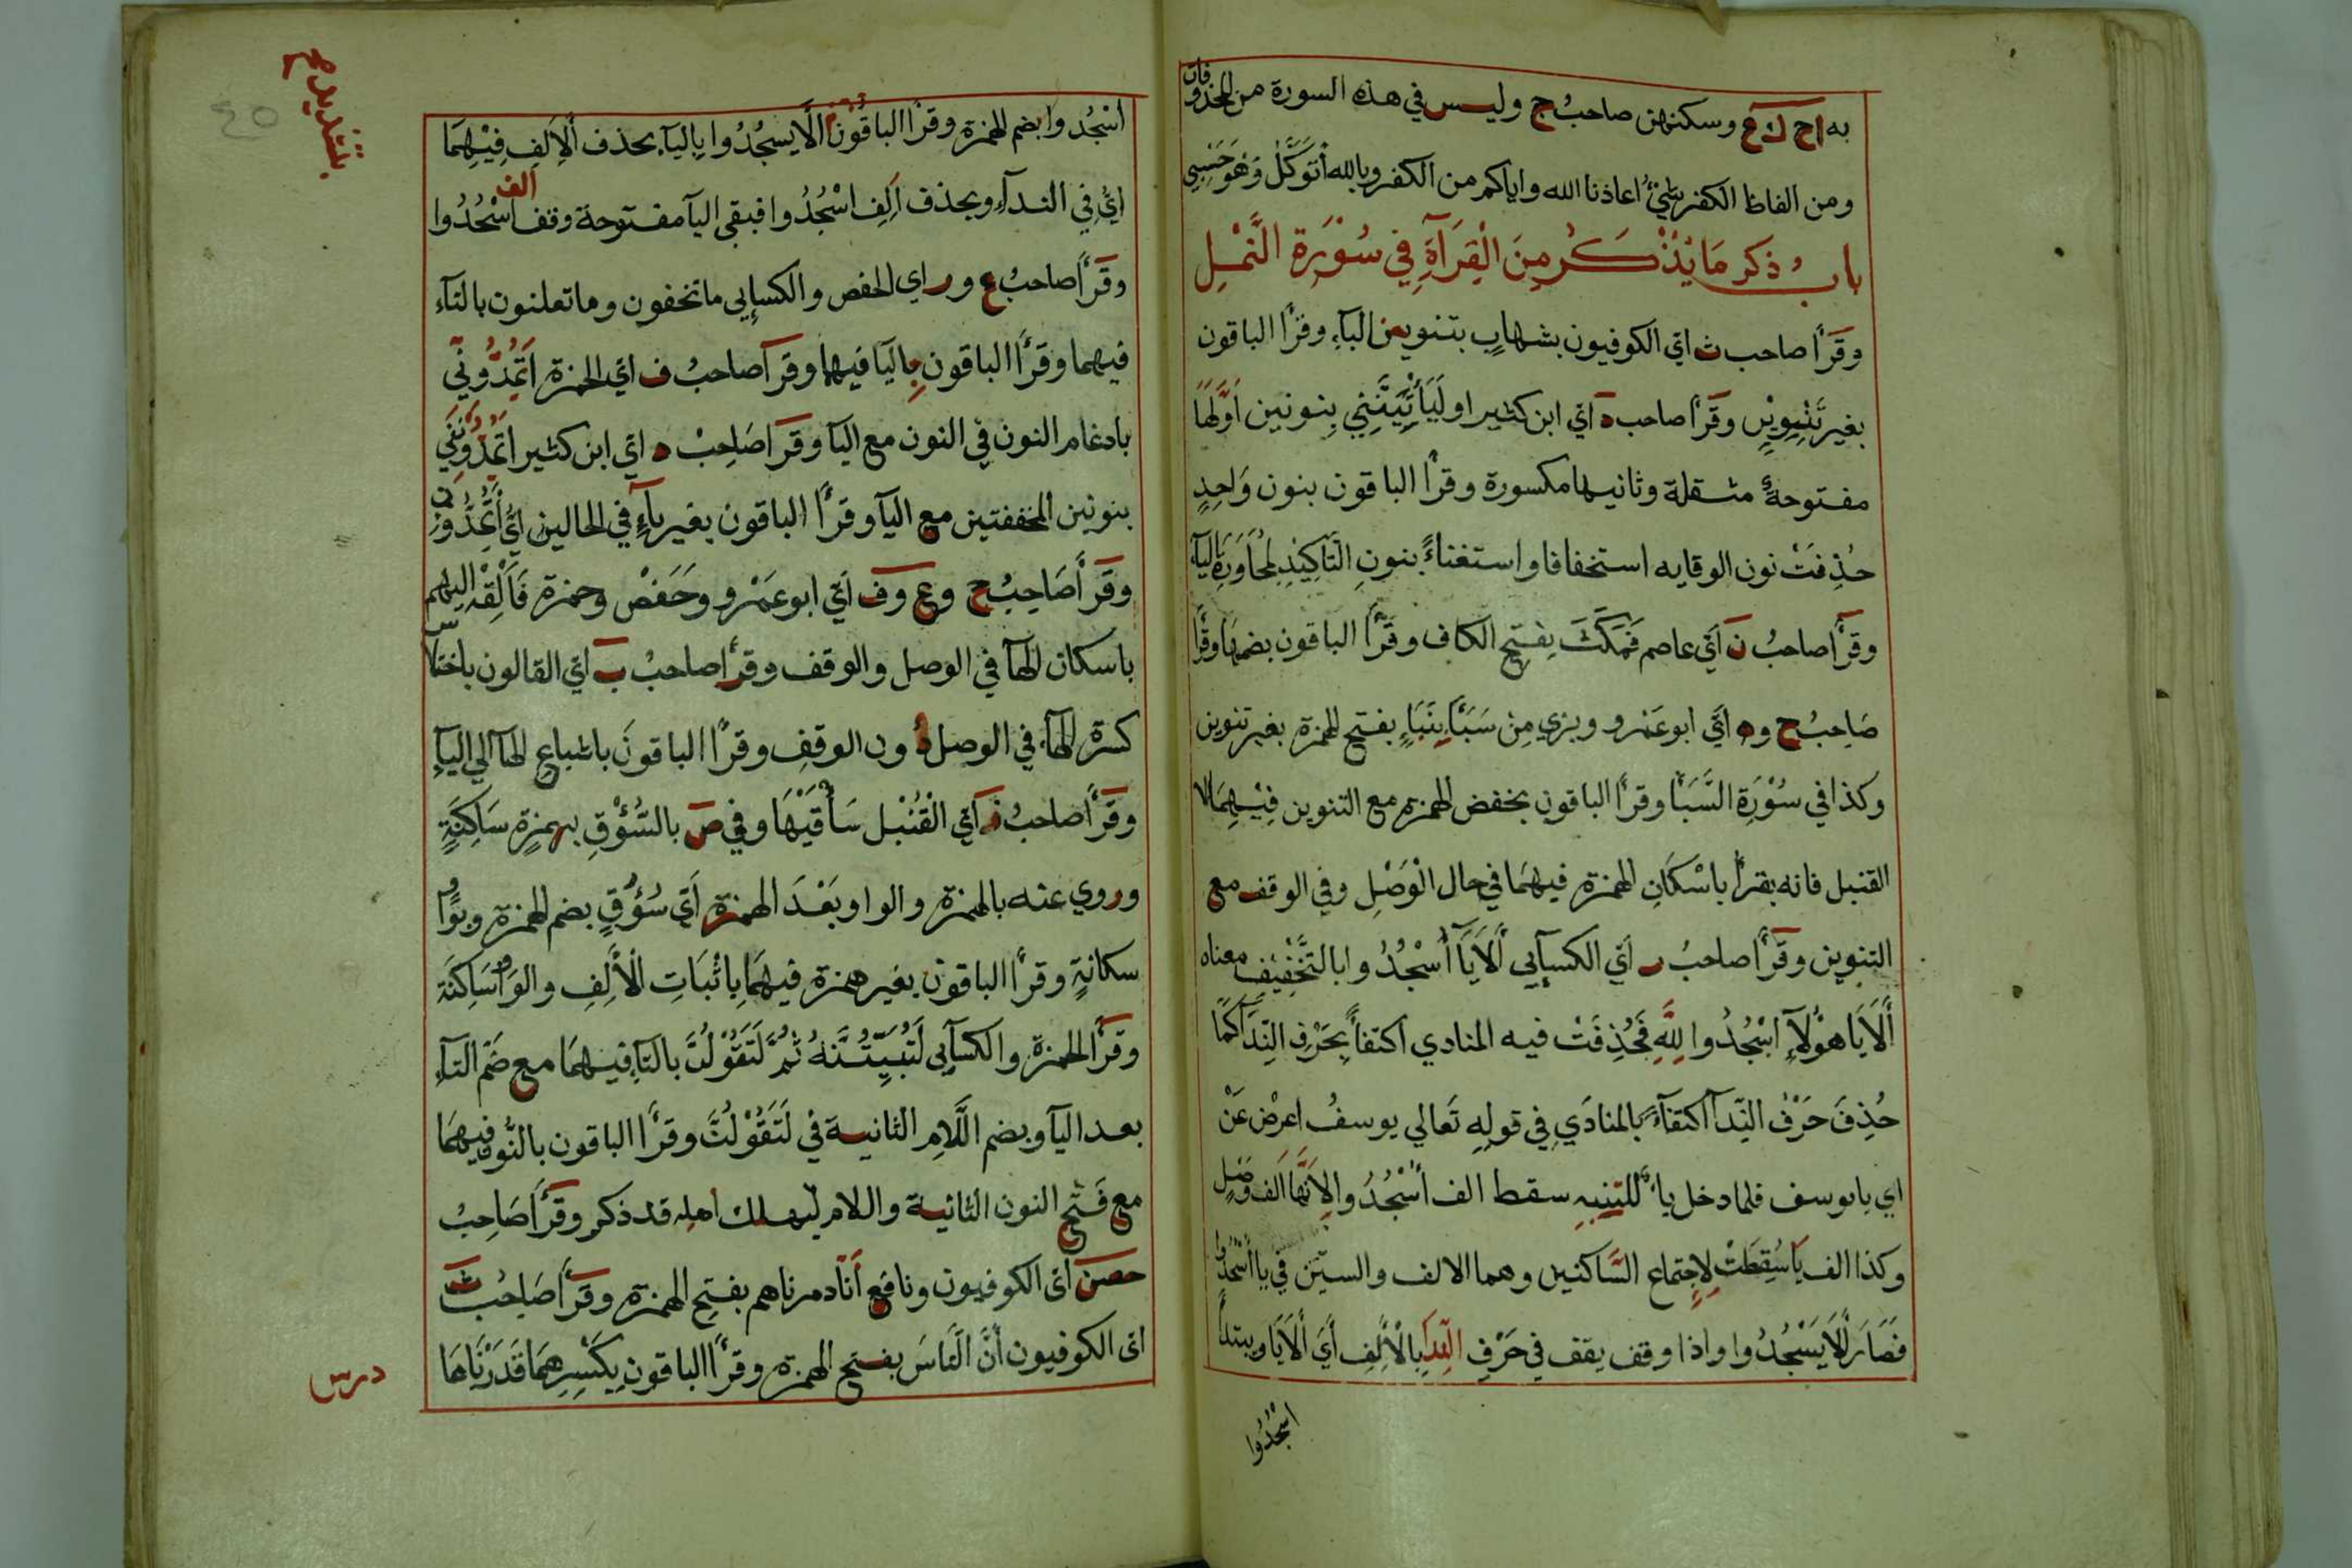 به اح ك ع وسكنهن صاحبُ ج وليس في هذه السورة من المحذوفات
ومن الفاظ الكفر شيُ اعاذنا الله واياكم من الكفر وبالله أتوَكَّلُ وَهُوَ حَسْبِي
بابُ ذكر مَا يُذْكَرُ مِنَ الْقِرَآةِ فِي سُوْرَةِ النَّمْلِ
وقَرَأَ صاحب ث ايّ الكوفيون بشهابٍ بتنوين البآءِ وقرأ الباقون
بغير تَنْوِيْنٍ وقَرَأَ صاحب ه ايّ ابن كثير او لَيَأْتِيَنَّنِي بِنونين اوّلها
مفتوحةٌ مثقلة وثانيها مكسورة وقرأ الباقون بنون وَاحِدٍ
حُذِفَتْ نون الوقايه استخفافا واستغناءً بنونِ التَّاكِيْدِ لِمُجَاوَرَةِ الْيَآءِ
وقَرَأَ صاحبُ نَ ايّ عاصم فَمَكَثَ بِفتحِ الكاف وقَرَأَ الباقون بضمها وقَرَأَ
صَاحِبُ ح وه ايّ ابو عَمْرو وبزي مِنْ سَبَأَ بِنَبَاءٍ بفتح الهمزة بغير تنوين
وكذا في سُوْرَةِ السَّبَأ وقرأ الباقون بخفض الهمزة مع التنوين فِيْهِمَا الا
القنبل فانه يقرأ باسْكانِ الهمزة فيهمَا في حال الْوَصْلِ وفي الوقف مع
التنوين وقَرَأَ صاحبُ ر ايّ الكسآيي أَلَايَآ أُسْجُدُوا بالتَّخْفِيْفِ معناه
أَلَايَا هؤُلَآءِ اسْجُدُوا لِلّٰهِ فَحُذِفَتْ فيه المنادي اكتفأً بِحَرْفِ النِّدَآ كَمَا
حُذِفَ حَرْفُ النِّدآ اكتفآءً بالمنادَي فِي قولِهِ تَعالي يوسفُ اعرضْ عَنْ
اي يا يوسف فلما دخل يا للتنبيهِ سقط الف أُسْجُدُوا لِاَنَّهَا اَلف وَصْلٍ
وكذا الف يَا سُقِطَتْ لِاجتماع السَّاكنين وهما الالف والسين فِي يا اُسْجُدُوا
فَصَارَ أَلَا يَسْجُدُوا واذا وقف يقف في حَرْفِ النِّدَآ بِالْأَلِفِ أَيَ أَلَايَا ويبتدأُ
اسْجُدُوا
اسْجُدوا بضم الهمزة وقرأ الباقُوْنَ اَلَّا يَسْجُدُوا بِاليآءِ بحذف أَلْاَلِفِ فِيْهِمَا
ايّ فِي الندآءِ وبحذف اَلِفِ اسْجُدُوا فيبقي اليآ مفتوحة وقف اُسْجُدُوا
الف
وقَرَأَ صاحبُ ع ور اي الحفص والكسايي ما تخفون وما تعلنون بالتآءِ
فيهما وقَرَأَ الباقون بِاليَآ فيهما وقرَأَ صاحبُ ف ايّ الحمزة اَتُمِدُّوْنِّي
بادغام النون فِي النون مع اليآ وقرَأ صَاحِبُ ه ايّ ابن كثير اَتُمِدُّوْنَنِي
بنونين المخففتين مع اليآ وقَرَأَ الباقون بغير يآءٍ في الحالين ايّ أَتُمِدُّوْنَنِ
وقَرَأَ صَاحِبُ ح وع وف اَيّ ابو عَمْرو وحَفَصْ وحمزة فَاَلْقِهْ اليهم
باسكان الهآ في الوصل والوقف وقرأ صاحبُ ب ايّ القالون باختلاس
كسرة الهآءِ في الوصل دُون الوقفِ وقرأ الباقونَ باشباعِ الهآ الي اليآءِ
وقَرَأَ صاحبُ ز ايّ الْقُنْبُل سَأْقَيْهَا وفي ص بالسُّؤْقِ بهمزةٍ سَاكِنَةٍ
وروي عنه بالهمزة والواو بَعْدَ الهمزة اَيّ سُؤُوْقٍ بضم الهمزة وبواوٍ
سكانةٍ وقرأ الباقون بغير همزة فيهمَا بِاثْبَاتِ الْاَلِفِ والوَاوِ سَاكِنَة
وقرَأَ الحمزة والكسآيي لَتُبَيِّتُنَّهُ ثُمَّ لَتَقُوْلُنَّ بالتآءِ فيهمَا مع ضَمّ التآءِ
بعد اليآ وبضم اللَّامِ الثانية فِي لَتَقُوْلُنَّ وقرَأَ الباقون بالنُّون فِيهمَا
مع فَتْحِ النون الثانية واللام ليهلك اهله قد ذكر وقَرَأَ صَاحِبُ
حصن ايّ الكوفيون ونافع أَنَّا دمرناهم بفتح الهمزة وقَرَأَ صَاحِبُ ث
ايّ الكوفيون أَنَّ النَّاسَ بفتح الهمزة وقرأ الباقون بِكَسْرِهمَا قَدَرْنَاهَا
درس
٤٥